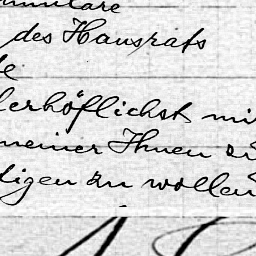 mulare
des Hausrats
lerhöflichst mi
meiner Ihnen zu
digen zu wollen